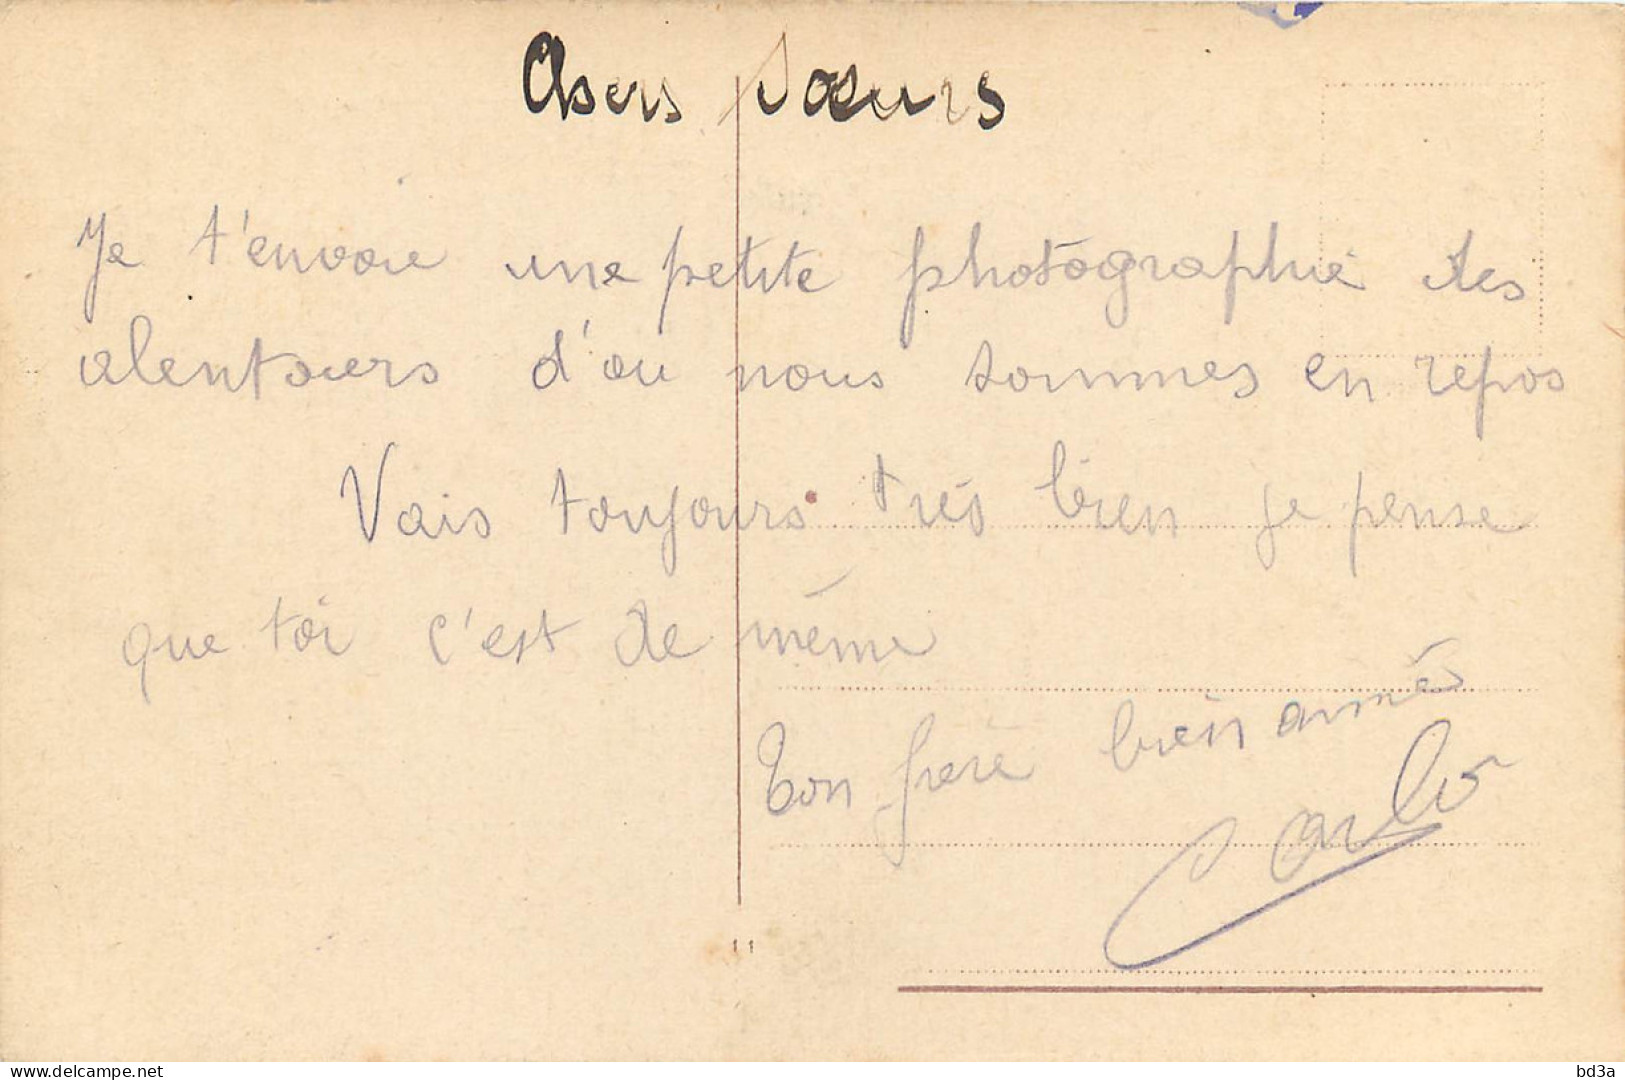 Chers Soeurs
Je t'envoie une petite photographie des
alentours d'ou nous sommes en repos
Vais toujours très bien je pense
que toi c'est de même
Ton frère bien aimé
Carlo
11
delcampe.net
bd3a